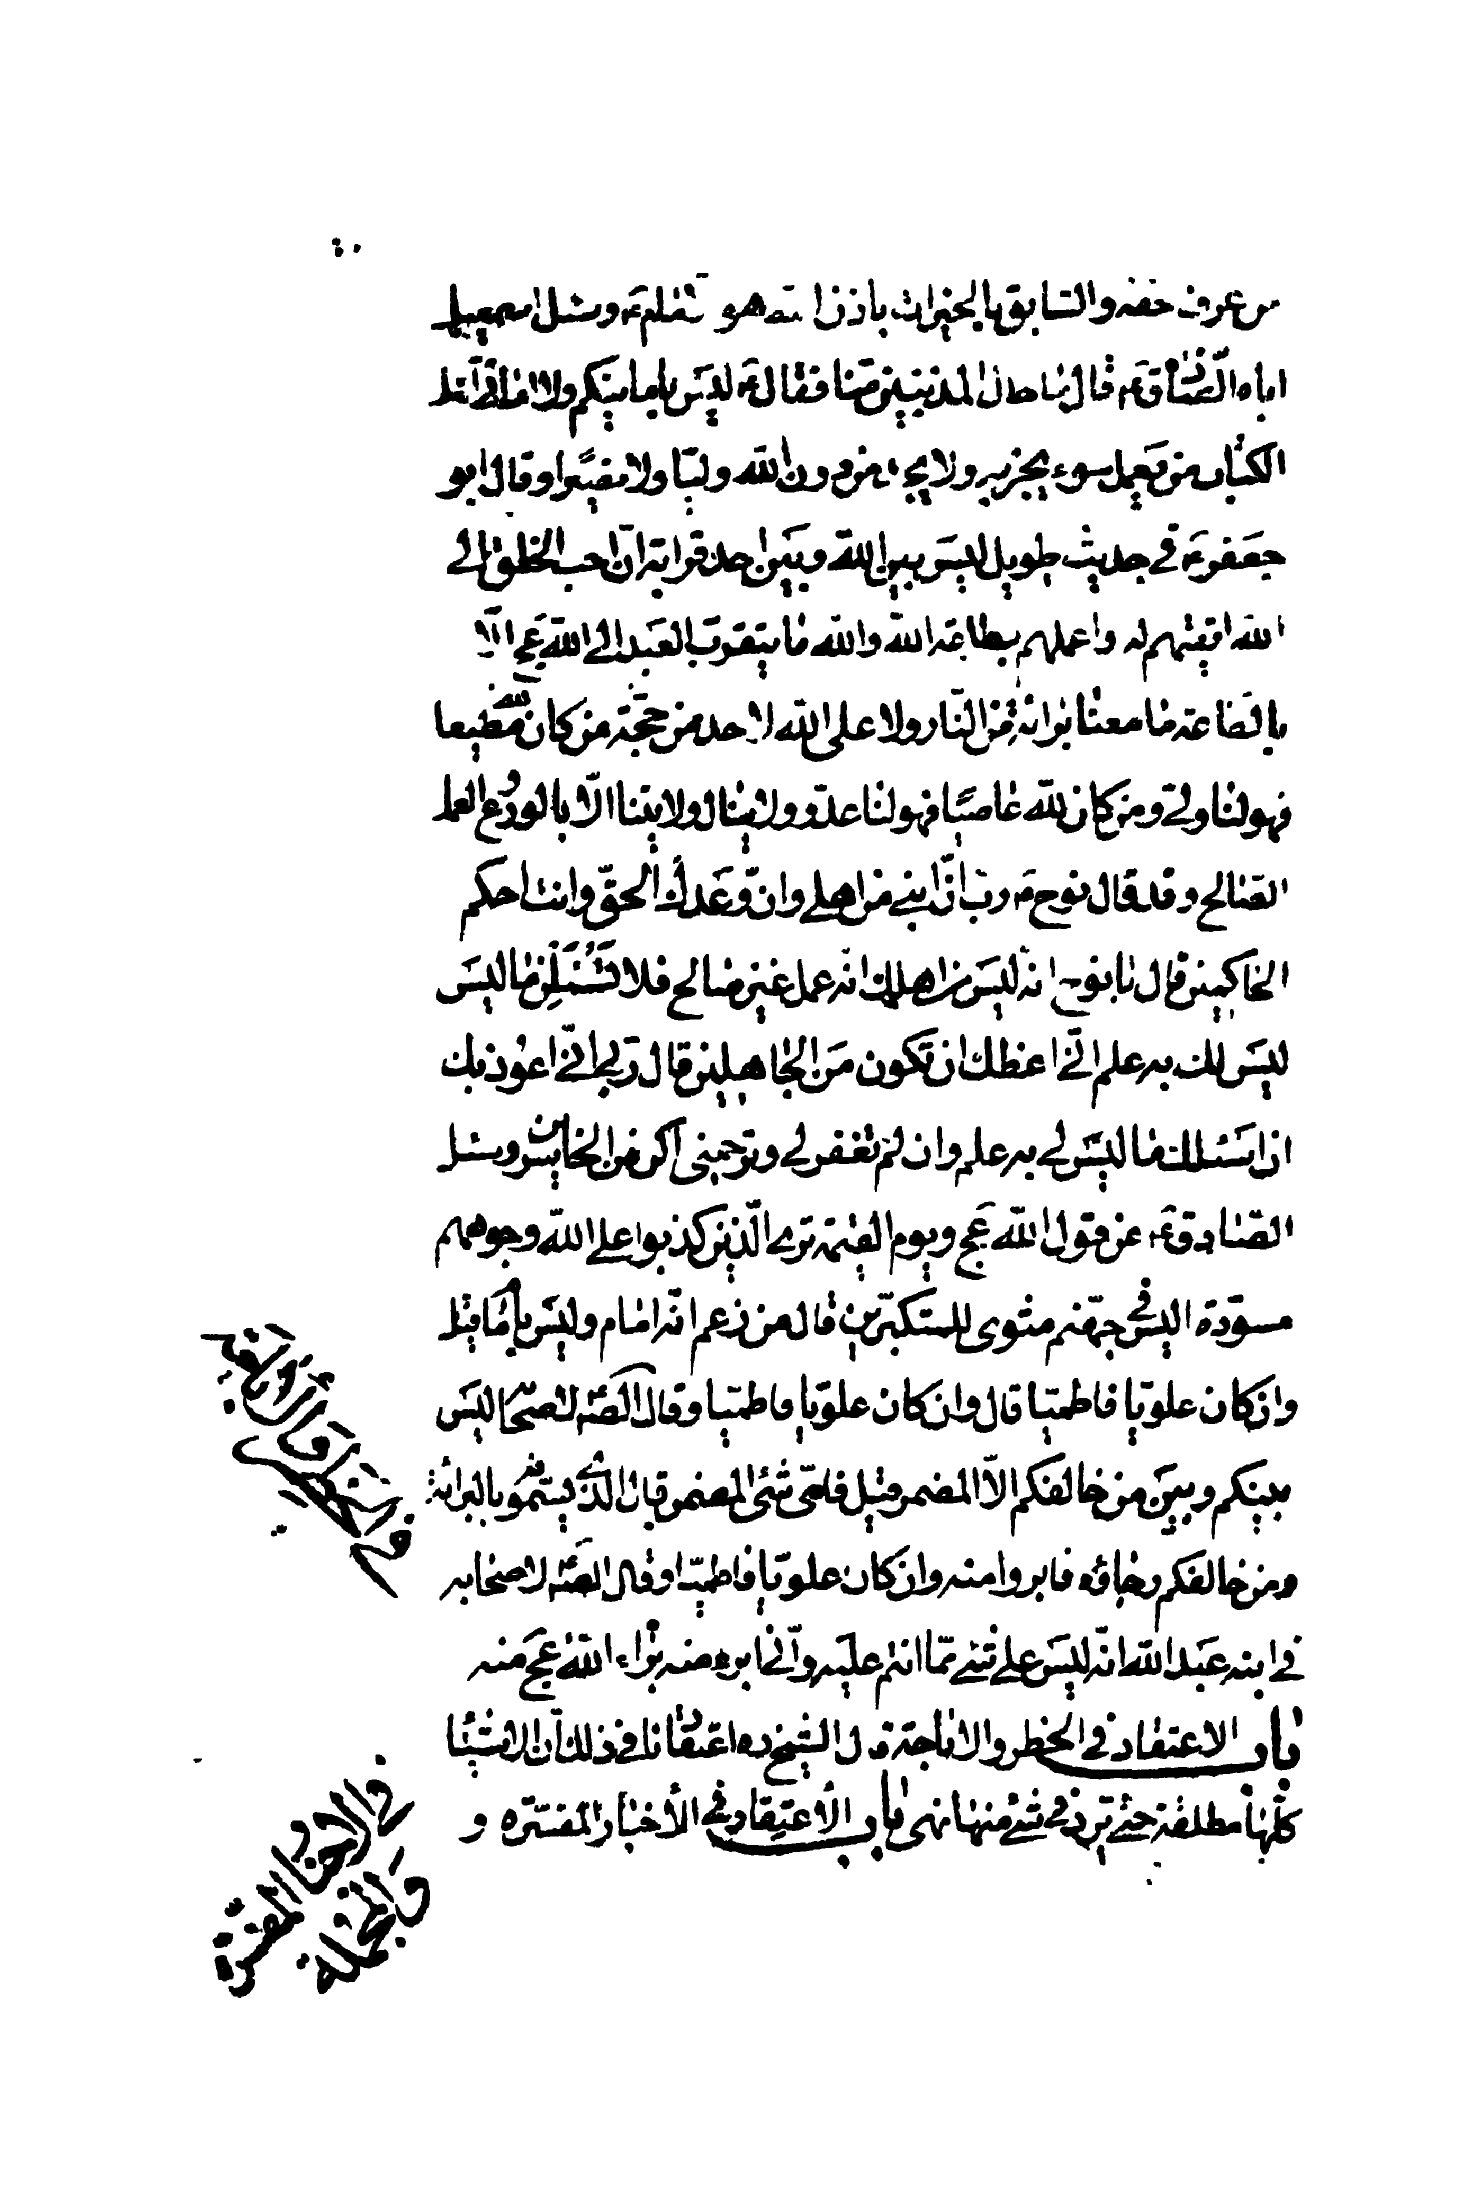 من عرف حقه والسابق بالخيرات باذن الله هو الامام ع وسئل اسمعيل
اباه الصادق ع قال ما حال المذنبين منا فقال ع ليس بامانيكم ولا امانى اهل
الكتاب من يعمل سوء يجز به ولا يجد من دون الله وليا ولا نصيرا وقال ابو
جعفر ع في حديث طويل ليس بين الله وبين احد قرابة ان احب الخلق الى
الله اتقيهم له واعملهم بطاعة الله والله ما يتقرب العبد الى الله عج الا
بالطاعة ما معنا برائة من النار ولا على الله لاحد من حجة من كان لله مطيعا
فهو لنا ولي ومن كان لله عاصيا فهو لنا عدو ولا ينال ولايتنا الا بالورع والعمل
الصالح وقد قال نوح ع رب ان ابني من اهلي وان وعدك الحق وانت احكم
الحاكمين قال يا نوح انه ليس من اهلك انه عمل غير صالح فلا تسئلن ما ليس
ليس لك به علم اني اعظك ان تكون من الجاهلين قال رب اني اعوذ بك
ان اسئلك ما ليس لي به علم وان لم تغفر لي وترحمني اكن من الخاسرين وسئل
الصادق ع عن قول الله عج ويوم القيمة ترى الذين كذبوا على الله وجوههم
مسودة اليس في جهنم مثوى للمتكبرين قال من زعم انه امام وليس بامام قيل
وان كان علويا فاطميا قال وان كان علويا فاطميا وقال الصادق ع لاصحابه ليس
بينكم وبين من خالفكم الا المضمر قيل فاى شئ المضمر قال الذي يسمونه بالبرائة
ومن خالفكم وجازه فابروا منه وان كان علويا فاطميا وقال الصادق ع لاصحابه
في ابنه عبد الله انه ليس على شئ مما انتم عليه واني ابرء منه برء الله عج منه
باب الاعتقاد في الحظر والاباحة قال الشيخ ره اعتقادنا في ذلك ان الاشياء
كلها مطلقة حتى يرد في شئ منها نهى باب الاعتقاد في الأخبار المفسرة و
في الاخبار المفسرة
والمجملة